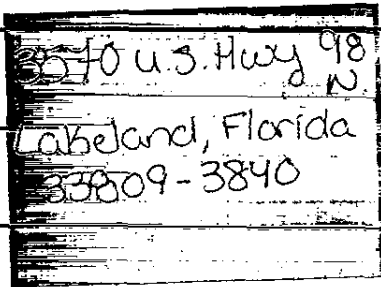 3570 U.S. Hwy 98
N.
Lakeland, Florida
33809-3840